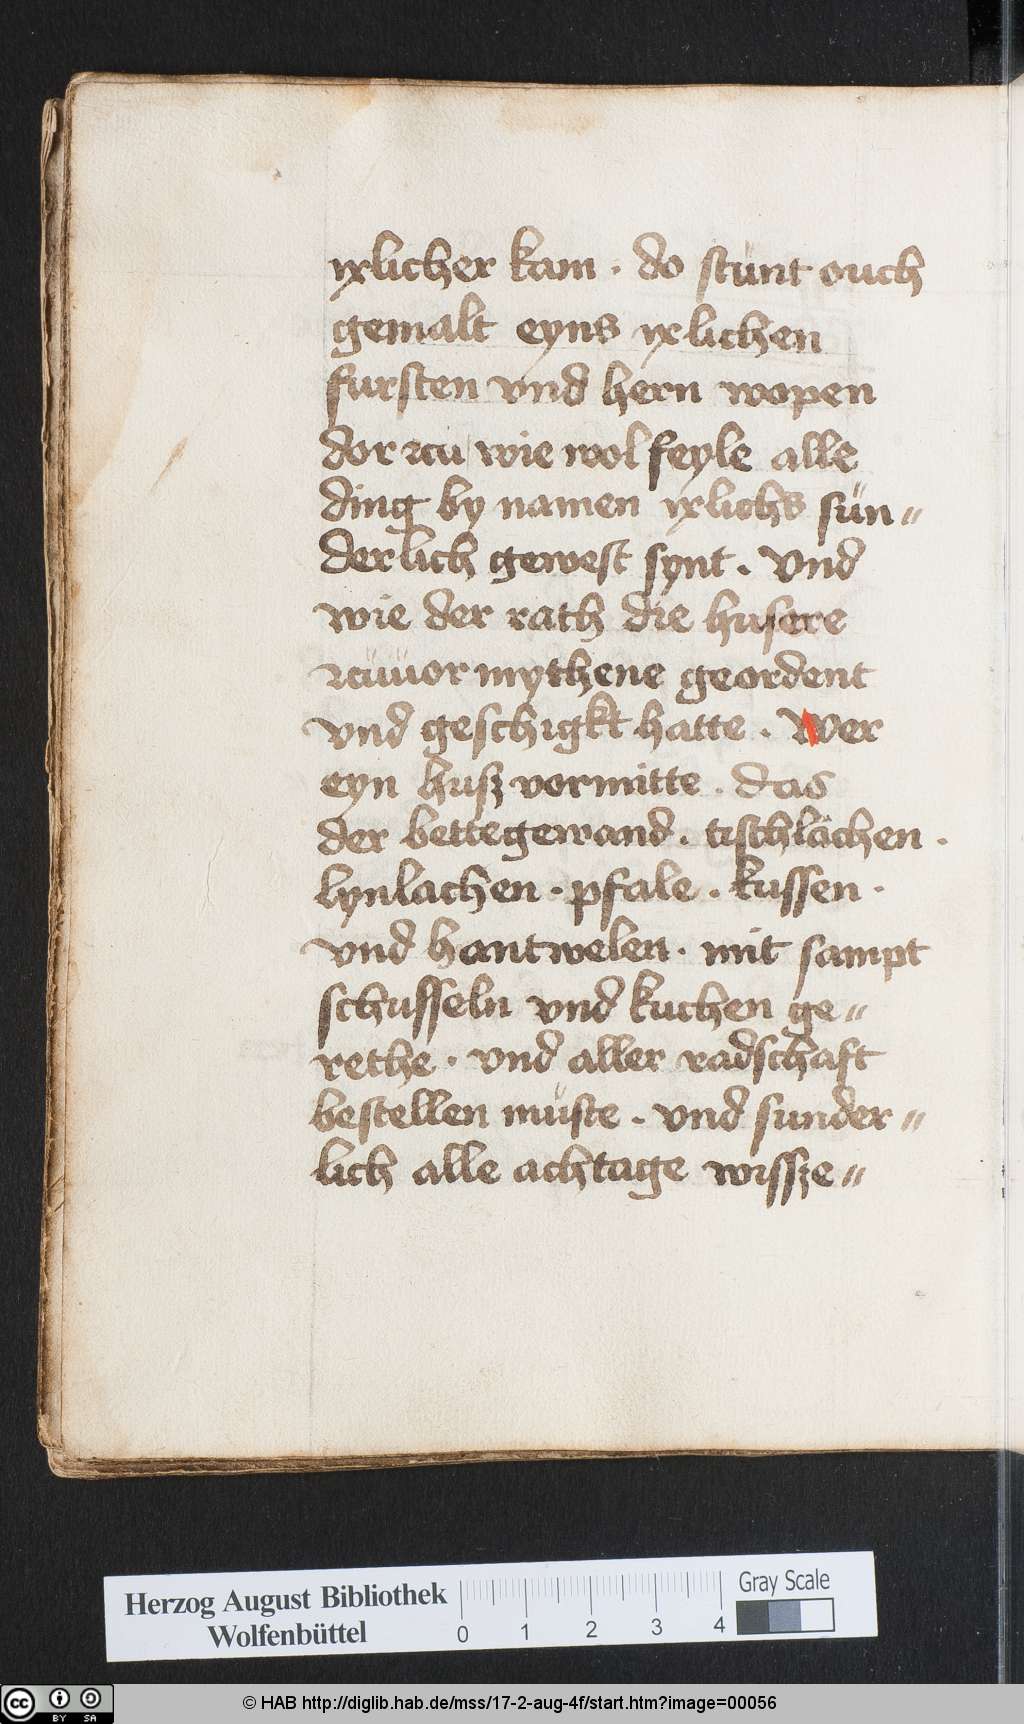 ixlicher kam . do stunt ouch
gemalt eyns ixlichen
fursten vnd hern wopen
dor zcu wie wol feyle alle
ding by namen ixlichs sün〃
derlich gewest synt . Vnd
wie der rath die husere
zcuuor mythene geordent
vnd geschigkt hatte . Wer
eyn husz vormitte . das
der bettegewand . tischlachen .
lynlachen . pfale . kussen .
vnd hantwelen . mit sampt
schusseln vnd kuchen ge〃
rethe . vnd aller radschaft
bestellen müste . vnd sunder〃
lich alle achtage wissze〃
Herzog August Bibliothek
Wolfenbüttel
Gray Scale
0 1 2 3 4
cc BY SA
© HAB http://diglib.hab.de/mss/17-2-aug-4f/start.htm?image=00056